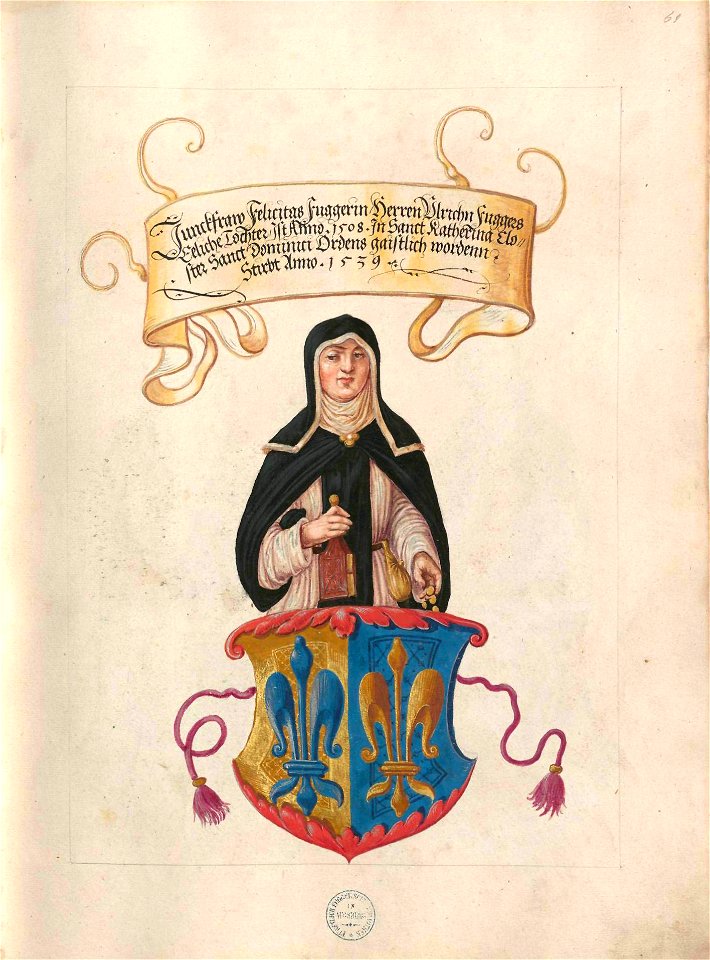 69
Junckfraw Felicitas Fuggerin Herren Vlrichn Fuggers
Eeliche Tochter Ist Anno. 1508. In Sanct Katherina Clo=
ster Sanct Dominici Ordens gaistlich wordenn.
Stirbt Anno. 1539
IN